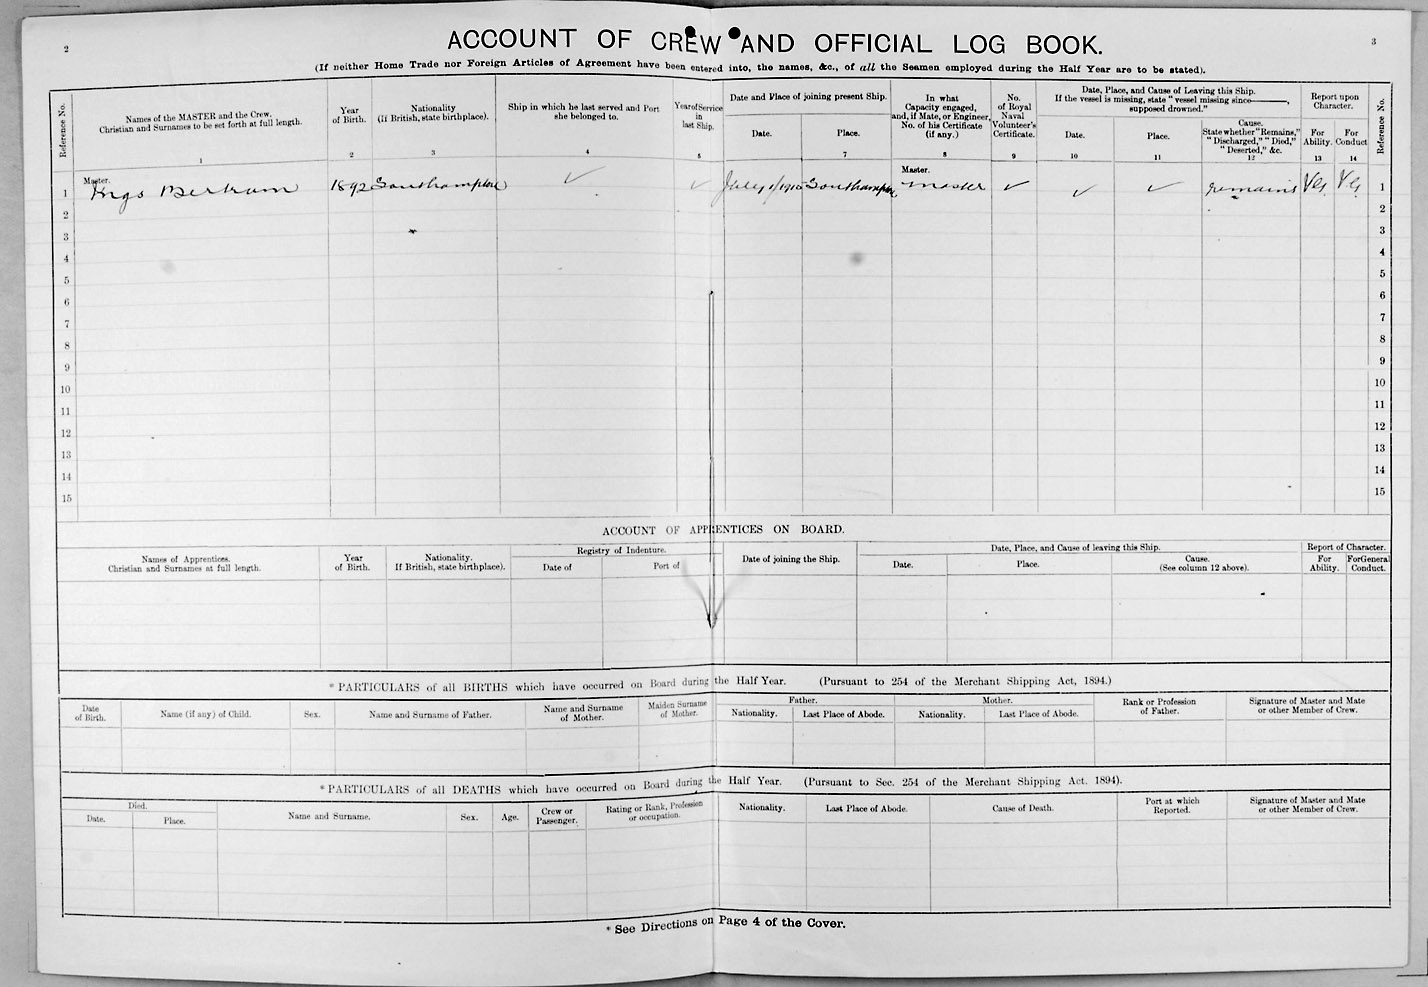 2
3
ACCOUNT OF CREW AND OFFICIAL LOG BOOK.
(If neither Home Trade nor Foreign Articles of Agreement have been entered into, the names, &c., of all the Seamen employed during the Half Year are to be stated).
Reference No.
Names of the MASTER and the Crew.
Christian and Surnames to be set forth at full length.
1
Year
of Birth.
2
Nationality
(If British, state birthplace).
3
Ship in which he last served and Port
she belonged to.
4
Year of Service
in
last Ship.
5
Date and Place of joining present Ship.
Date.
Place.
7
In what
Capacity engaged,
and, if Mate, or Engineer,
No. of his Certificate
(if any.)
8
No.
of Royal
Naval
Volunteer's
Certificate.
9
Date, Place, and Cause of Leaving this Ship.
If the vessel is missing, state "vessel missing since———,
supposed drowned."
Date.
10
Place.
11
Cause.
State whether "Remains,"
"Discharged," "Died,"
"Deserted," &c.
12
Report upon
Character.
For
Ability.
13
For
Conduct
14
Reference No.
Master.
Master.
1 Bertram 1892 Southampton ✓ ✓ Southampton master ✓ ✓ ✓ remains VG VG 1
2 2
3 3
4 4
5 5
6 6
7 7
8 8
9 9
10 10
11 11
12 12
13 13
14 14
15 15
ACCOUNT OF APPRENTICES ON BOARD.
Names of Apprentices.
Christian and Surnames at full length.
Year
of Birth.
Nationality.
If British, state birthplace).
Registry of Indenture.
Date of
Port of
Date of joining the Ship.
Date, Place, and Cause of leaving this Ship.
Date.
Place.
Cause.
(See column 12 above).
Report of Character.
For
Ability.
For General
Conduct.
* PARTICULARS of all BIRTHS which have occurred on Board during the Half Year. (Pursuant to 254 of the Merchant Shipping Act, 1894.)
Date
of Birth.
Name (if any) of Child.
Sex.
Name and Surname of Father.
Name and Surname
of Mother.
Maiden Surname
of Mother.
Father.
Nationality.
Last Place of Abode.
Mother.
Nationality.
Last Place of Abode.
Rank or Profession
of Father.
Signature of Master and Mate
or other Member of Crew.
* PARTICULARS of all DEATHS which have occurred on Board during the Half Year. (Pursuant to Sec. 254 of the Merchant Shipping Act. 1894).
Died.
Date.
Place.
Name and Surname.
Sex.
Age.
Crew or
Passenger.
Rating or Rank, Profession
or occupation.
Nationality.
Last Place of Abode.
Cause of Death.
Port at which
Reported.
Signature of Master and Mate
or other Member of Crew.
* See Directions on Page 4 of the Cover.